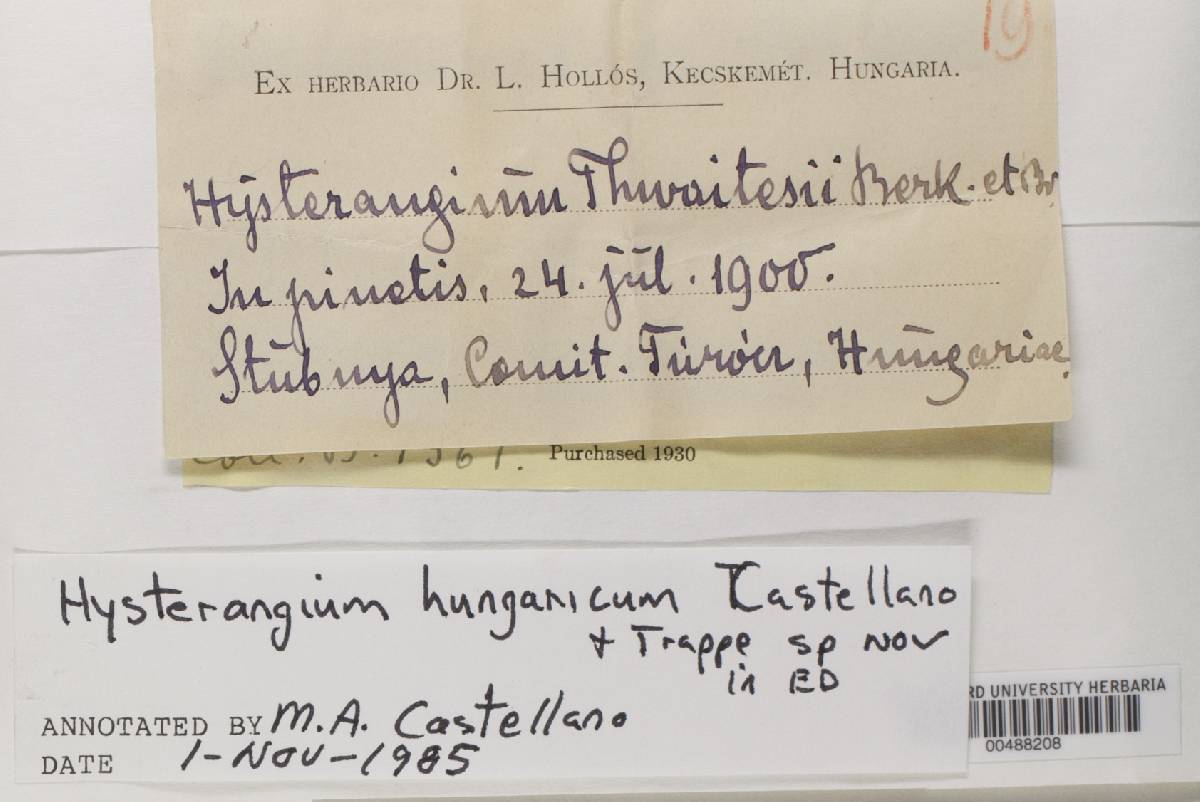 19
EX HERBARIO DR. L. HOLLÓS, KECSKEMÉT. HUNGARIA.
Hysterangium Thwaitesii Berk. et Br.
In pinetis, 24. jul. 1900.
Stubnya, Comit. Túrócz, Hungariae.
Purchased 1930
Hysterangium hungaricum Castellano
+ Trappe sp nov
in ED
ANNOTATED BY M.A. Castellano
DATE 1-NOV-1985
RD UNIVERSITY HERBARIA
00488208